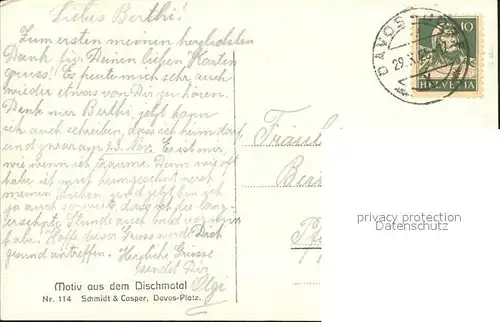 Liebes Berthi!
Zum ersten meinen herzlichsten
Dank für Deinen lieben Karten
gruss! Es freute mich sehr auch
wieder etwas von Dir zu hören.
Denk nur Berthi jetzt kann
ich auch schreiben, dass ich heim darf
und zwar am 23. Nov. Es ist mir,
wie wenn ich träume. Denn wie oft
habe ich mich heimgesehnt nach
meinen Lieben, und jetzt bin ich
ja auch so weit dass ich die lang-
ersehnte Stunde auch bald vor mir
habe. Hoffe dieser Gruss werde Dich
gesund antreffen. Herzliche Grüsse
sendet Dir
Olgi
Motiv aus dem Dischmatal
Nr. 114 Schmidt & Casper, Davos-Platz.
DAVOS
29. X
10
HELVETIA
Fräul
Ber
privacy protection
Datenschutz